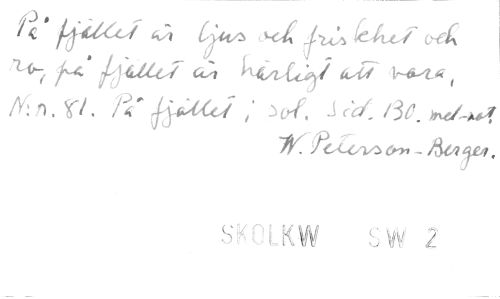 På fjället är ljus och friskhet och
ro, på fjället är härligt att vara,
N:r. 81. På fjället i sol. Sid. 130. mel-not.
W. Peterson-Berger.
SKOLKW SW 2